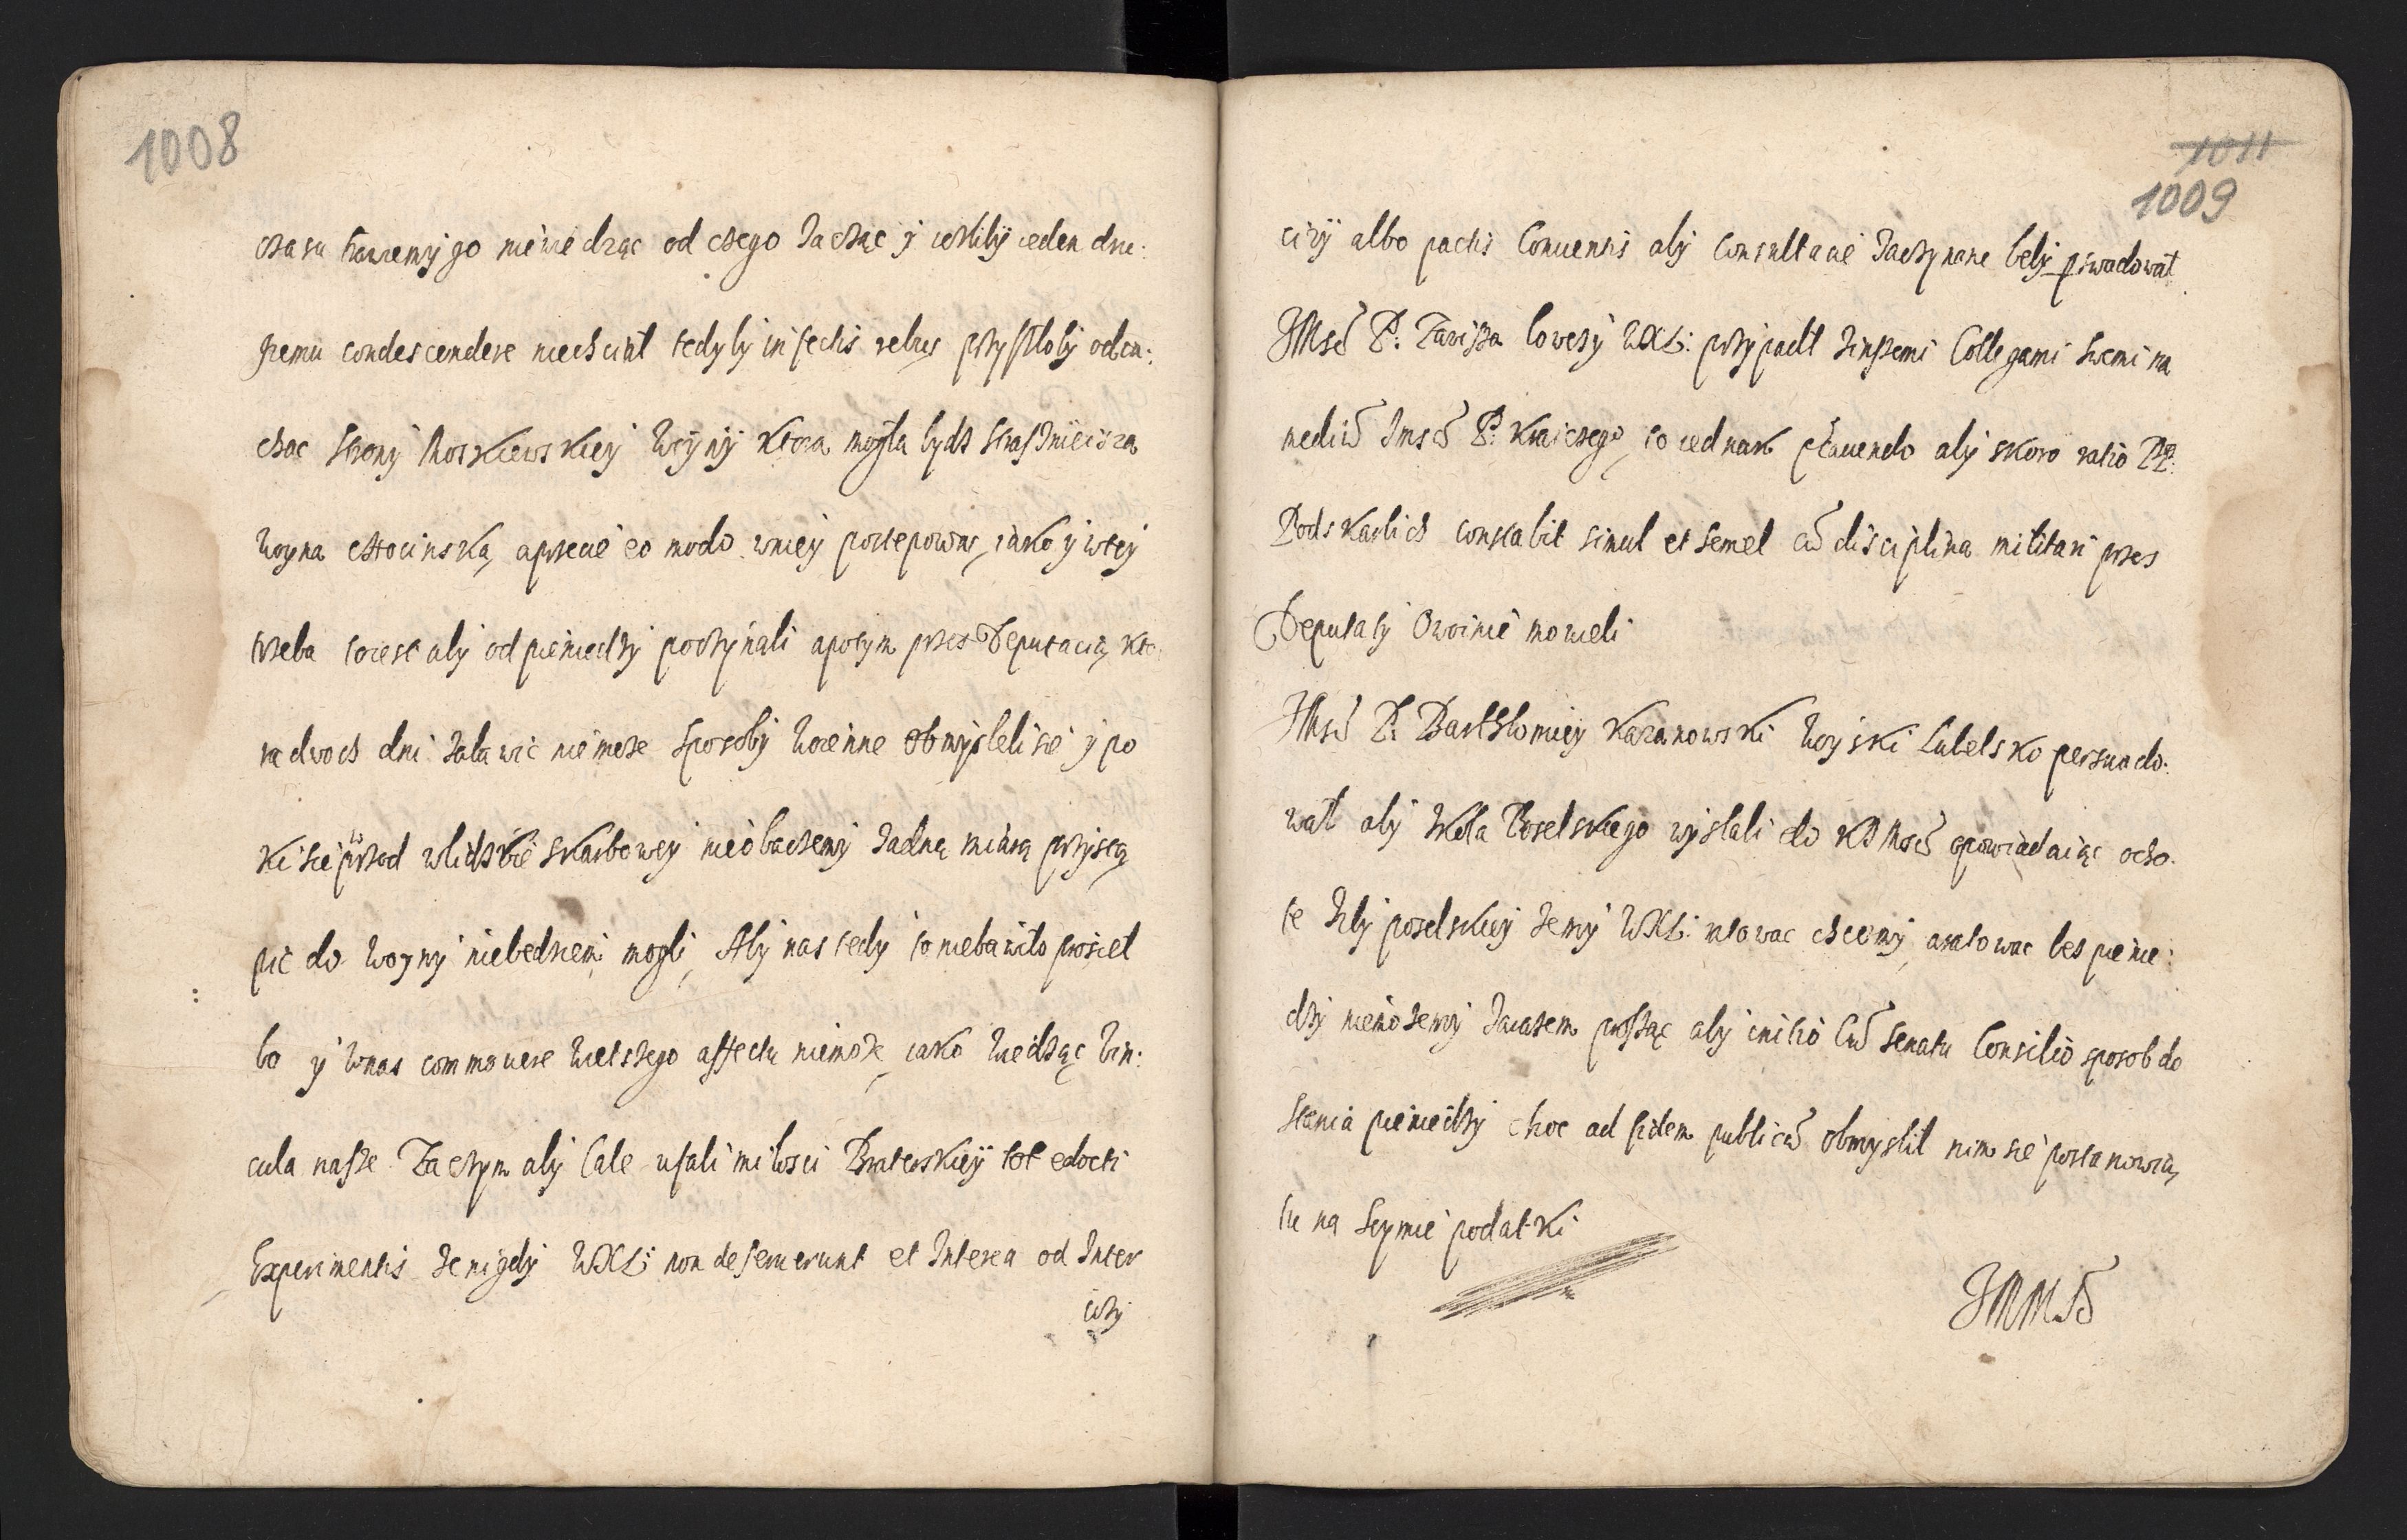 1008
czasu trawiemy go niewiedząc od czego zacząc y iesliby ieden dru:
giemu condescendere niechciał tedyby infectis rebus przyszłoby odbie:
chac strony Moskiewskiey Woyny ktora mogła bydz strasznieisza
Woyna chocinska, aprzecie eo modo wniey postepowac, iako y wtey
trzeba toiest aby od pieniedzy poczynali apotym przez Deputacią kto
ra dwoch dni zabawic niemoze sposoby Woienne obmyslelisie y po
ki sie wprzod wliczbie skarbowey nieobaczemy zadną miarą przystą
pic do Woyny niebedziemy mogli, Aby nas tedy to niebawiło prosieł
bo y wnas commouere wietszego affectu niemoze, iako wiedząc Vin:
cula nasze Zaczym aby Cale ufali miłosci Braterskiey tot edocti
Experimentis ze nigdy WXL: non deseruerunt et Interea od Inter
cizy
1011
1009
cizy albo pactis Conuentis aby Consultacie zaczynane beły pswadował
JMsć P: Zawisza łowczy WXL: przypadł zinszemi Collegami swemi na
mediū Jmsć P: Kraiczego, to iednak pcauendo aby skoro ratio PP:
Podskarbich constabit simul et semel cū disciplina militari przes
Deputaty Owoinie mowieli
JMsć P: Barthłomiey Kazanowski Woyski Lubelski persuado:
wał aby zKoła Poselskiego wysłali do KJMsci opowiadaiąc ocho:
te Izby poselskiey zemy WXL: ratowac chcemy, aratowac bes pienie:
dzy niemozemy zarazem prosząc aby initio Cū Senatu Consilio sposob do
stania pieniedzy choc ad fidem publicū obmyslił nim sie postanowią,
tu na Seymie podatki